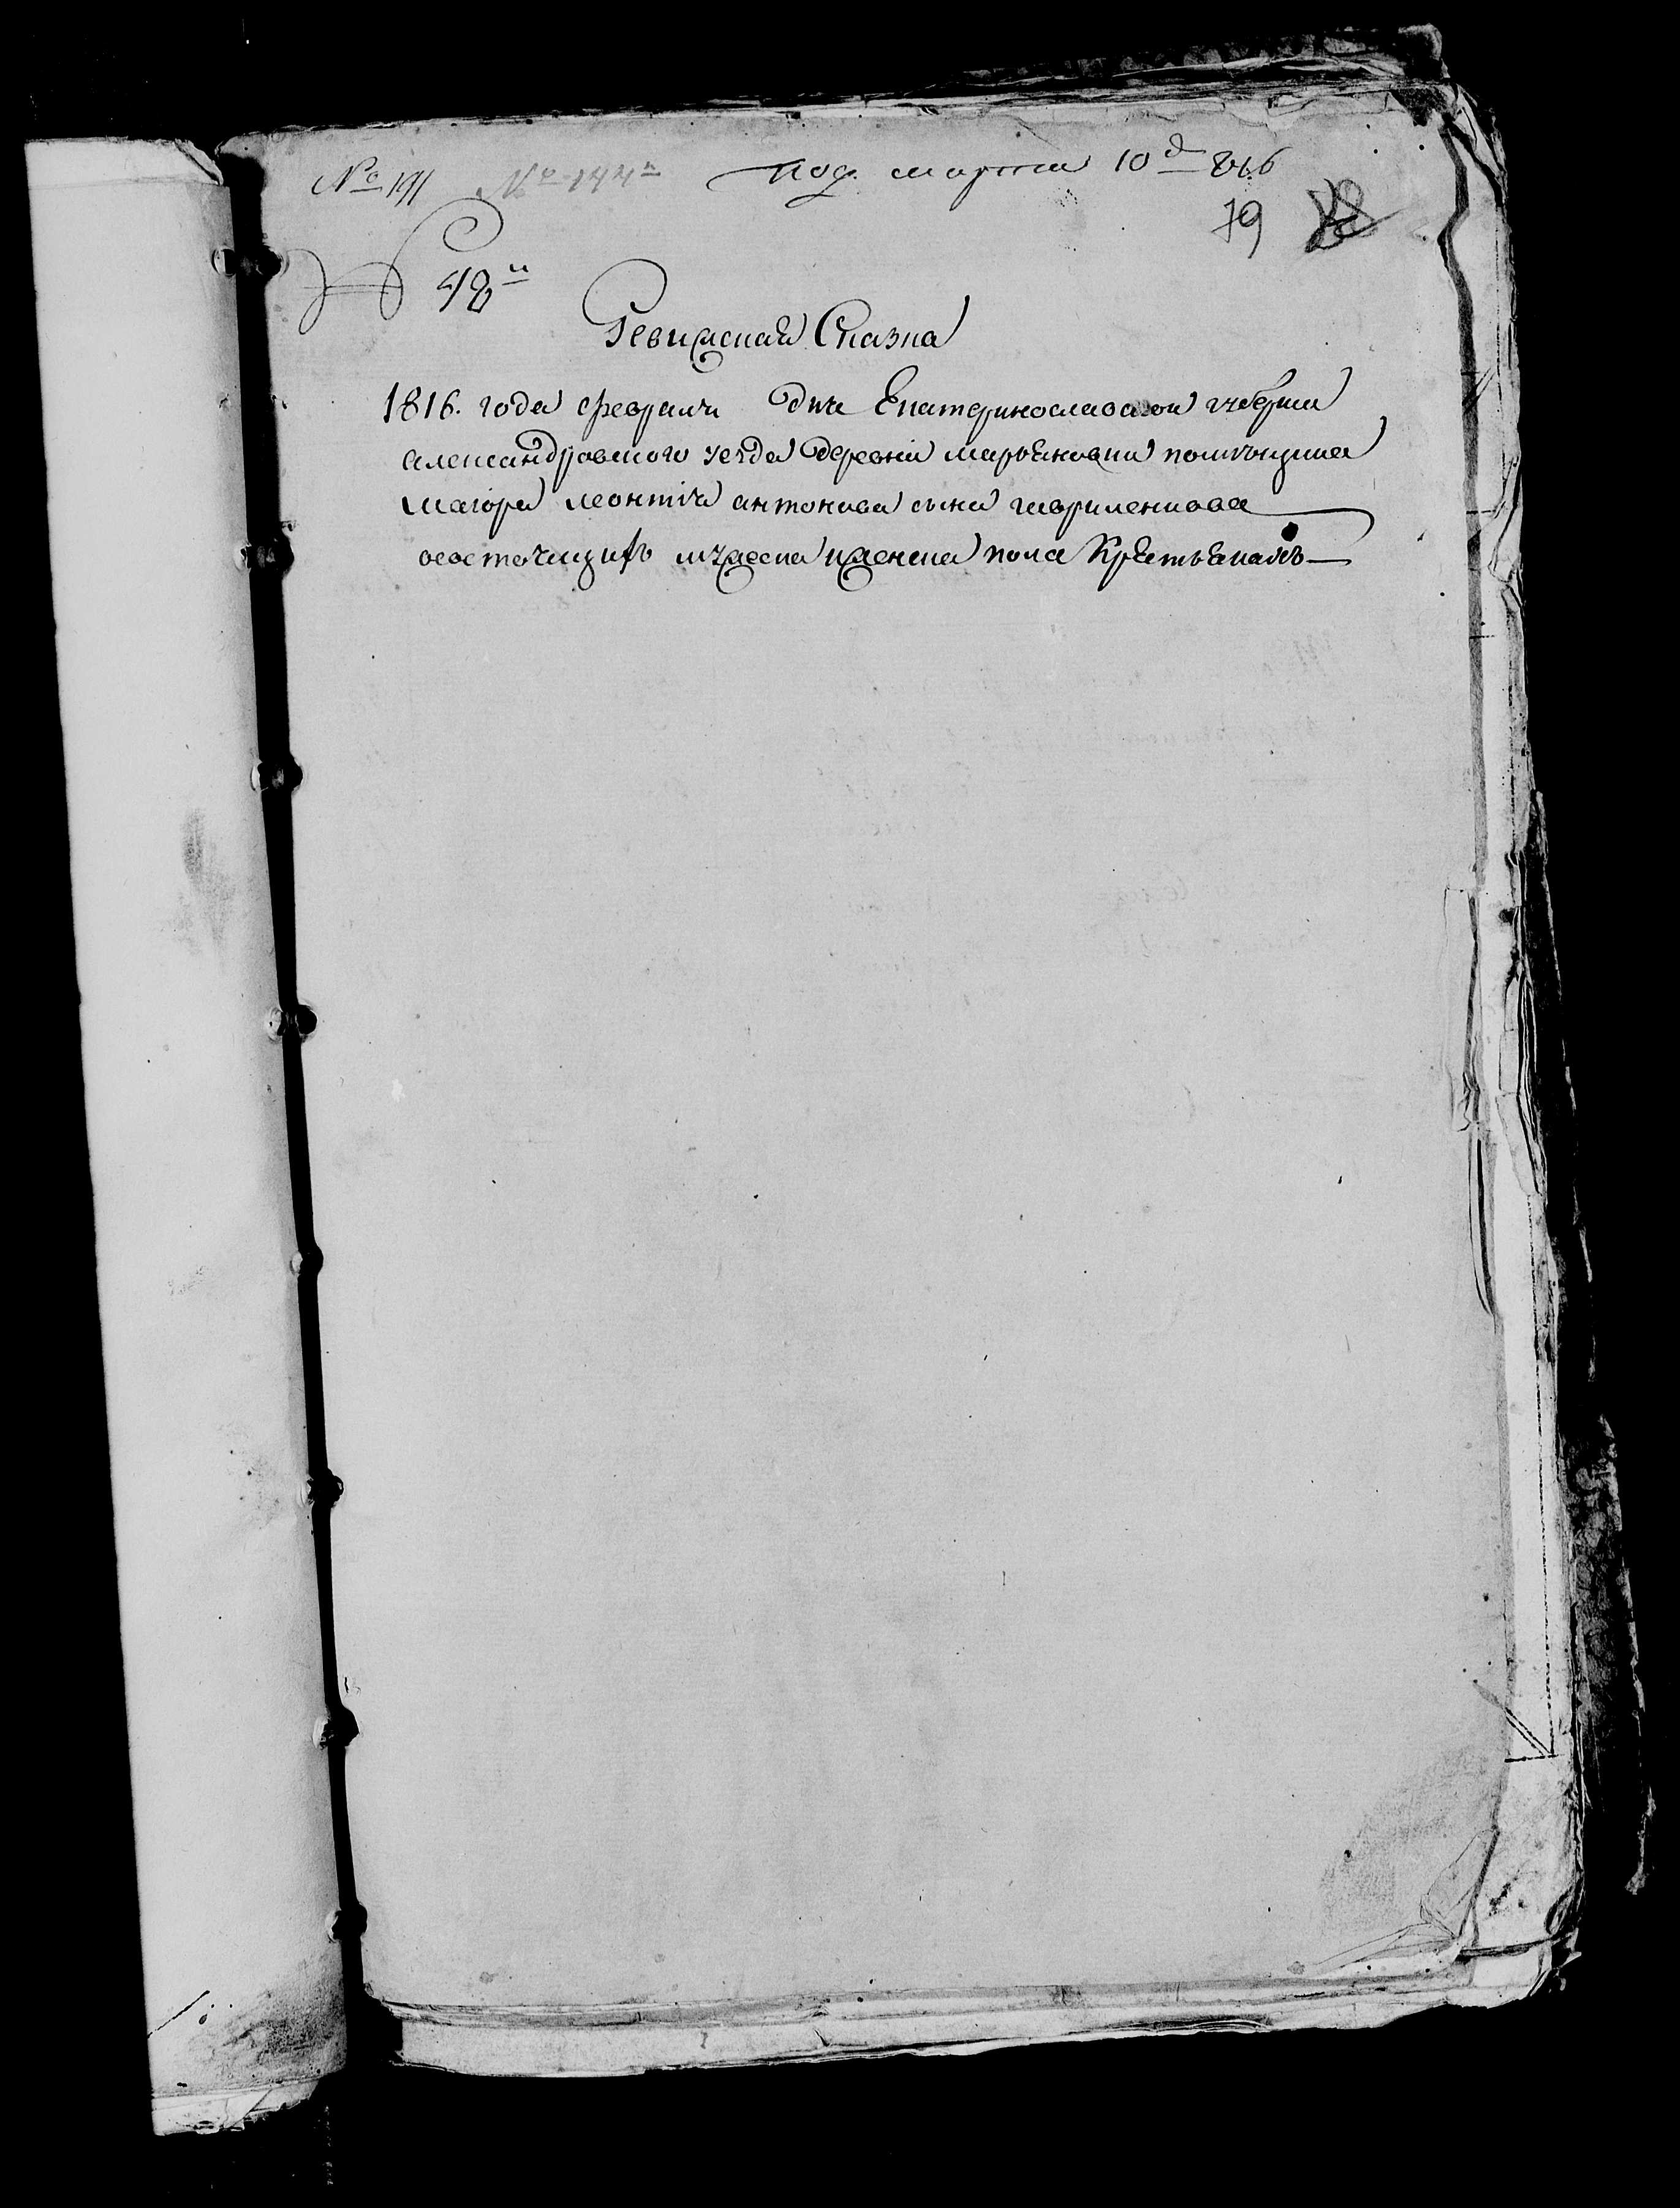 № 191 № 144 под. марта 10 д 816
79
48
Ревиская Сказка
1816. года февраля дня Екатеринославской губерни
александровского уезда деревни марьяновки помещика
маіора леонтія антонова сына гавриленкова
о состоящихъ мужеска и женска пола крестьянахъ